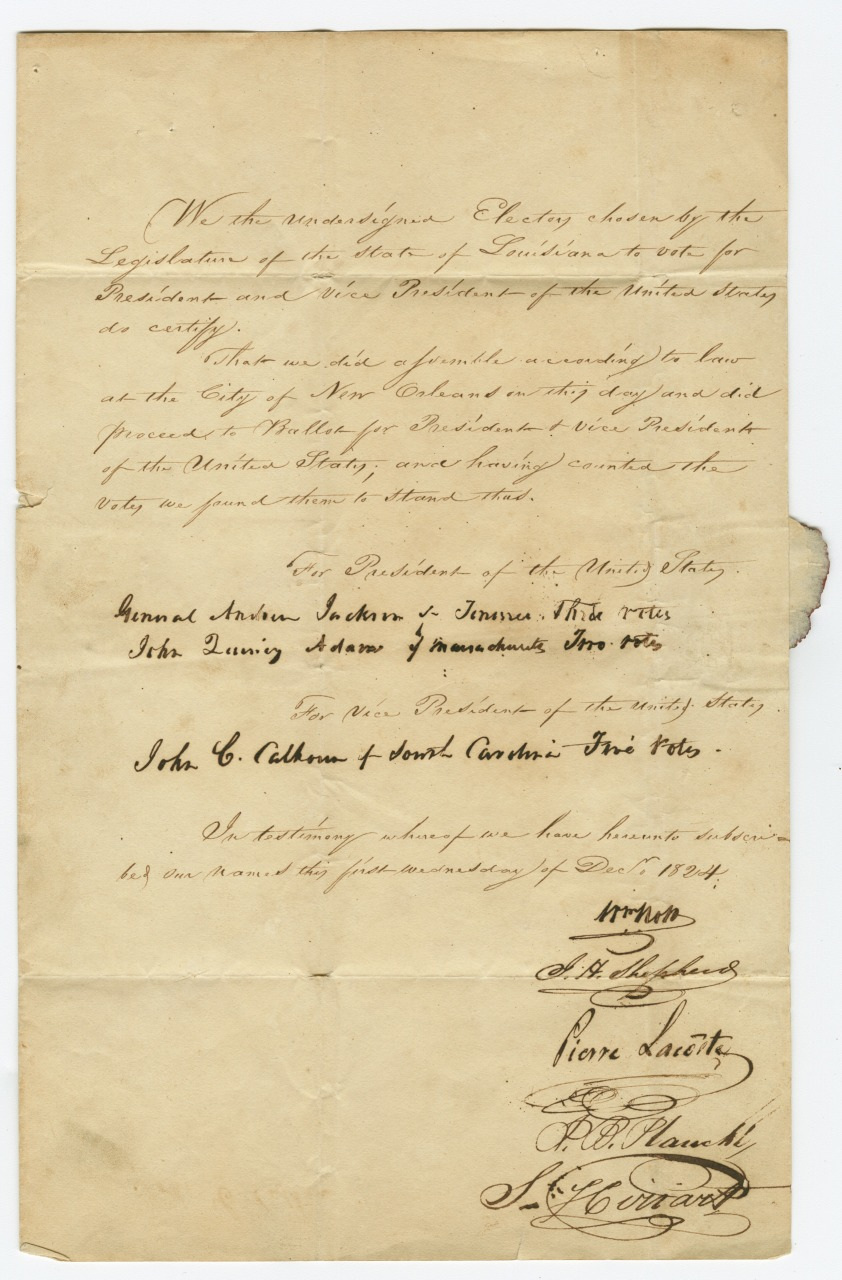 We the undersigned Electors chosen by the
Legislature of the State of Louisiana to vote for
President and vice President of the United States
do certify.
That we did assemble according to law
at the City of New Orleans on this day and did
proceed to Ballot for President & vice President
of the United States, and having counted the
votes we found them to stand thus.
For President of the United States.
General Andrew Jackson of Tennessee Three votes
John Quincy Adams of Massachusetts Two votes
For Vice President of the United States.
John C. Calhoun of South Carolina Five Votes.
In testimony whereof we have hereunto subscri-
bed our names this first wednesday of Decr. 1824.
Wm Nott
J. H. Shepherd
Pierre Lacoste
J. B. Planché
S. Hiriart